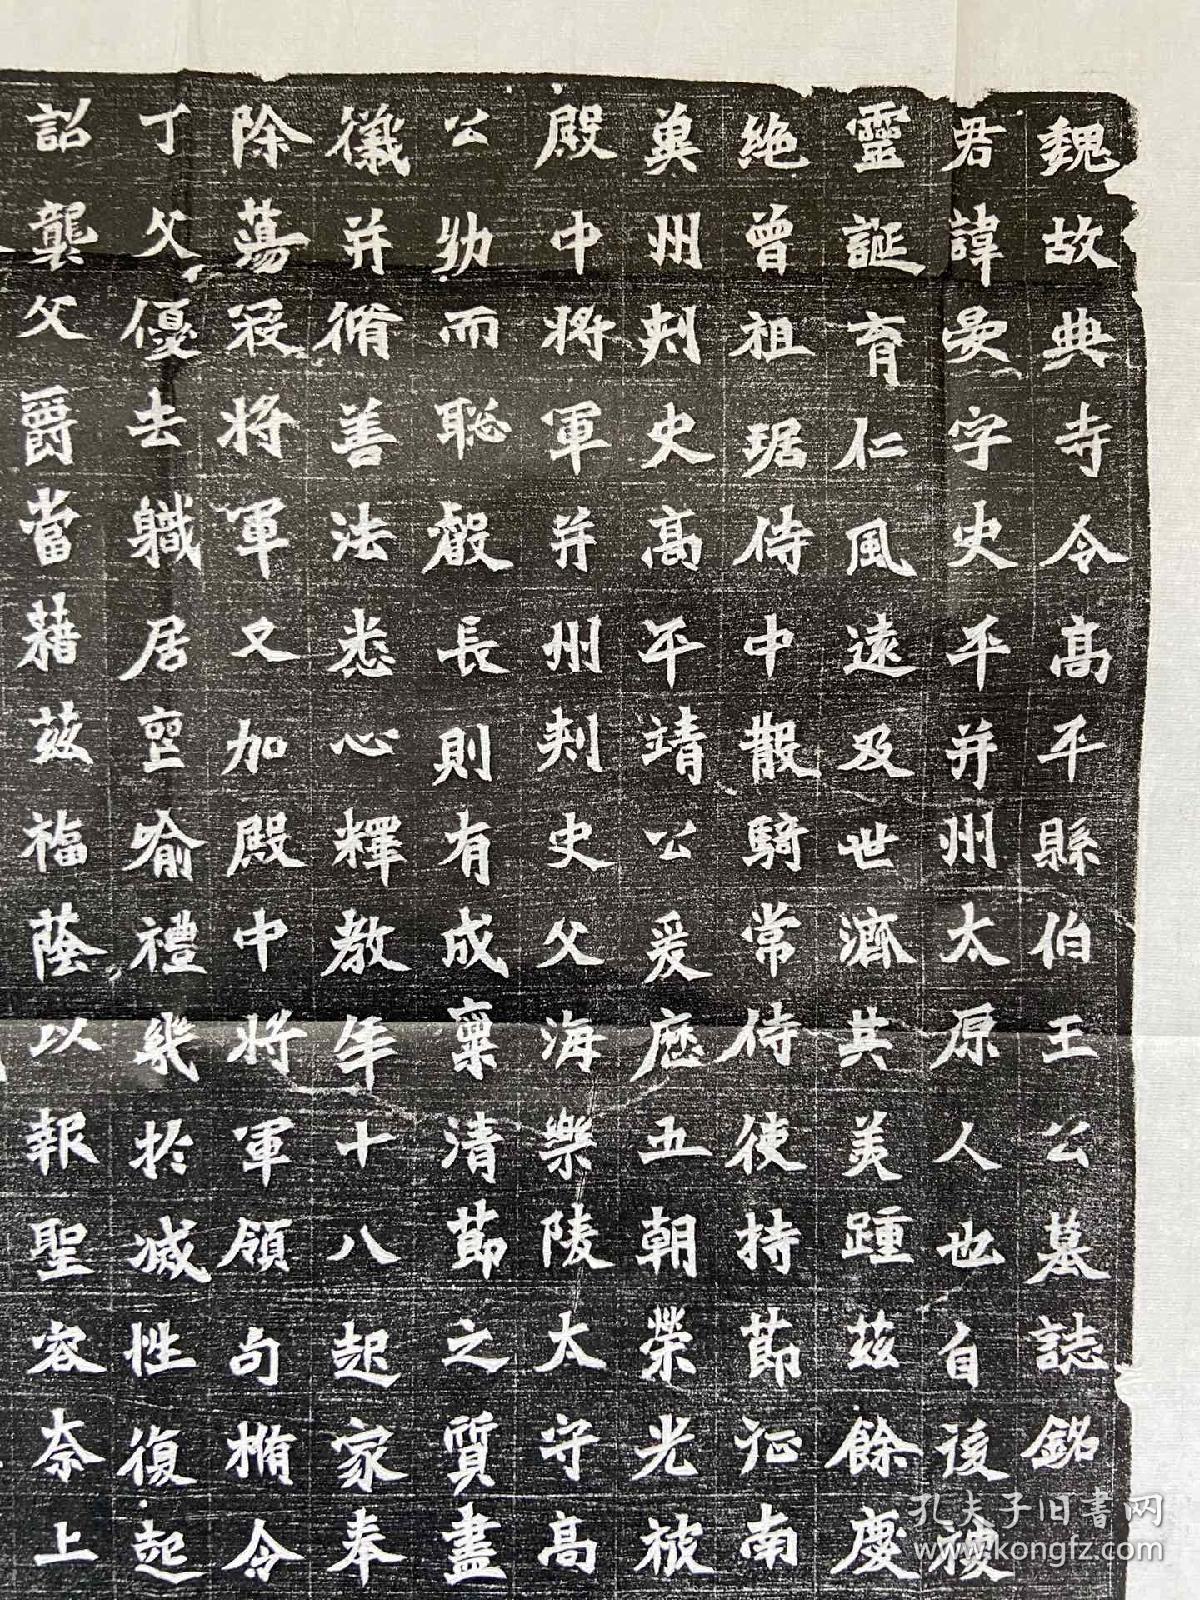 魏故典寺令高平縣伯王公墓誌銘
君諱旻字史平并州太原人也自後稷
靈誕育仁風遠及世濟其美踵茲餘慶
絶曾祖琚侍中散騎常侍使持節征南
冀州刺史高平靖公爰歷五朝榮光被
殿中將軍并州刺史父海樂陵太守高
公幼而聡叡長則有成稟清節之質盡
徽并脩善法悉心釋教年十八起家奉
除蕩寇將軍又加殿中將軍領句楯令
丁父優去職居喪喻禮幾於滅性復起
詔襲父爵當藉茲福蔭以報聖容奈上
孔夫子旧书网
www.kongfz.com